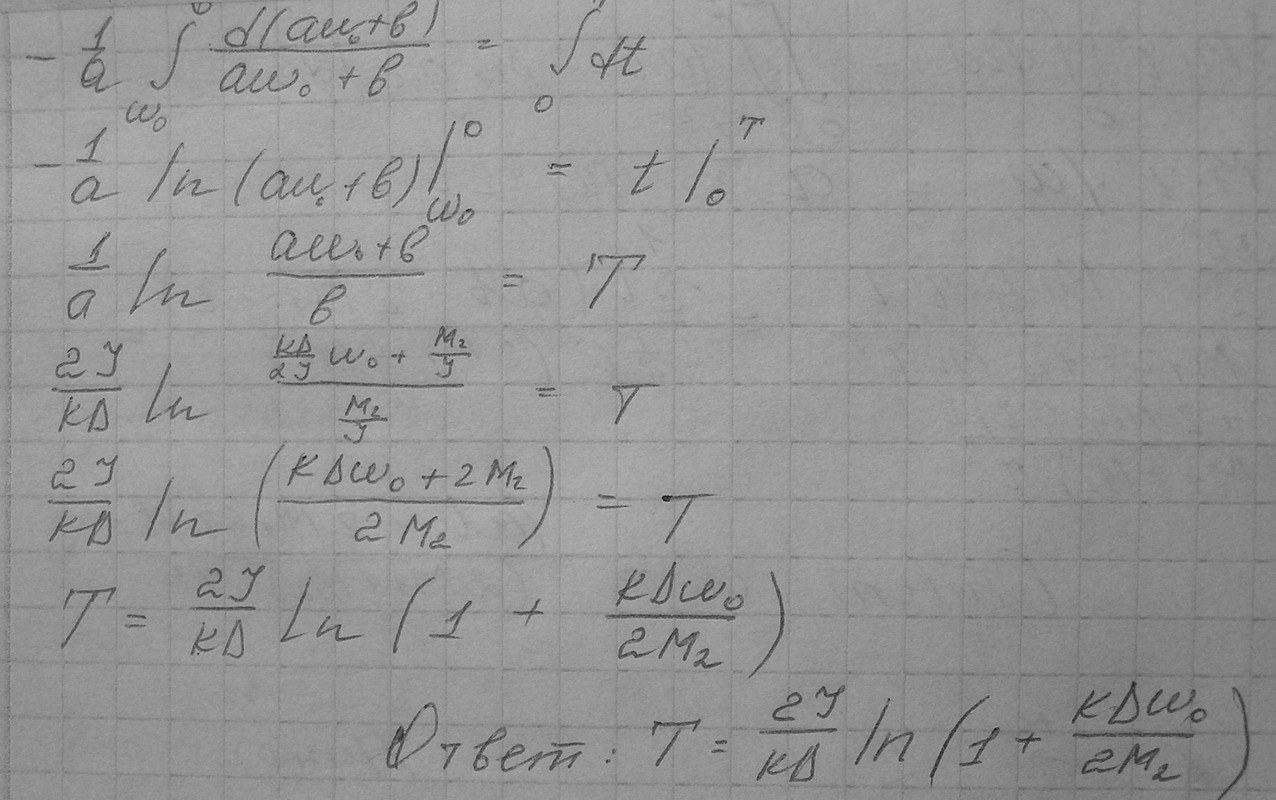 -1/a ∫_{ω₀}^{0} d(aω₀+в)/(aω₀+в) = ∫_0 dt
-1/a ln(aω₀+в)|_{ω₀}^{0} = t|_0^T
1/a ln (aω₀+в)/в = T
2J/KD ln (KD/2J ω₀ + M₂/J)/(M₂/J) = T
2J/KD ln ((KDω₀+2M₂)/2M₂) = T
T = 2J/KD ln (1 + KDω₀/2M₂)
Ответ: T = 2J/KD ln (1 + KDω₀/2M₂)